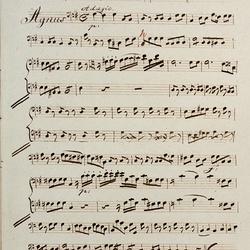 Agnus
Adagio